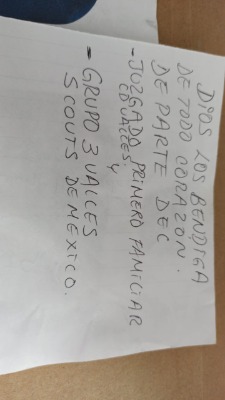 DIOS LOS BENDIGA
DE TODO CORAZON.
DE PARTE DEC
- JUZGADO PRIMERO FAMILIAR
CD VALLES Y
- GRUPO 3 VALLES
SCOUTS DE MEXICO.